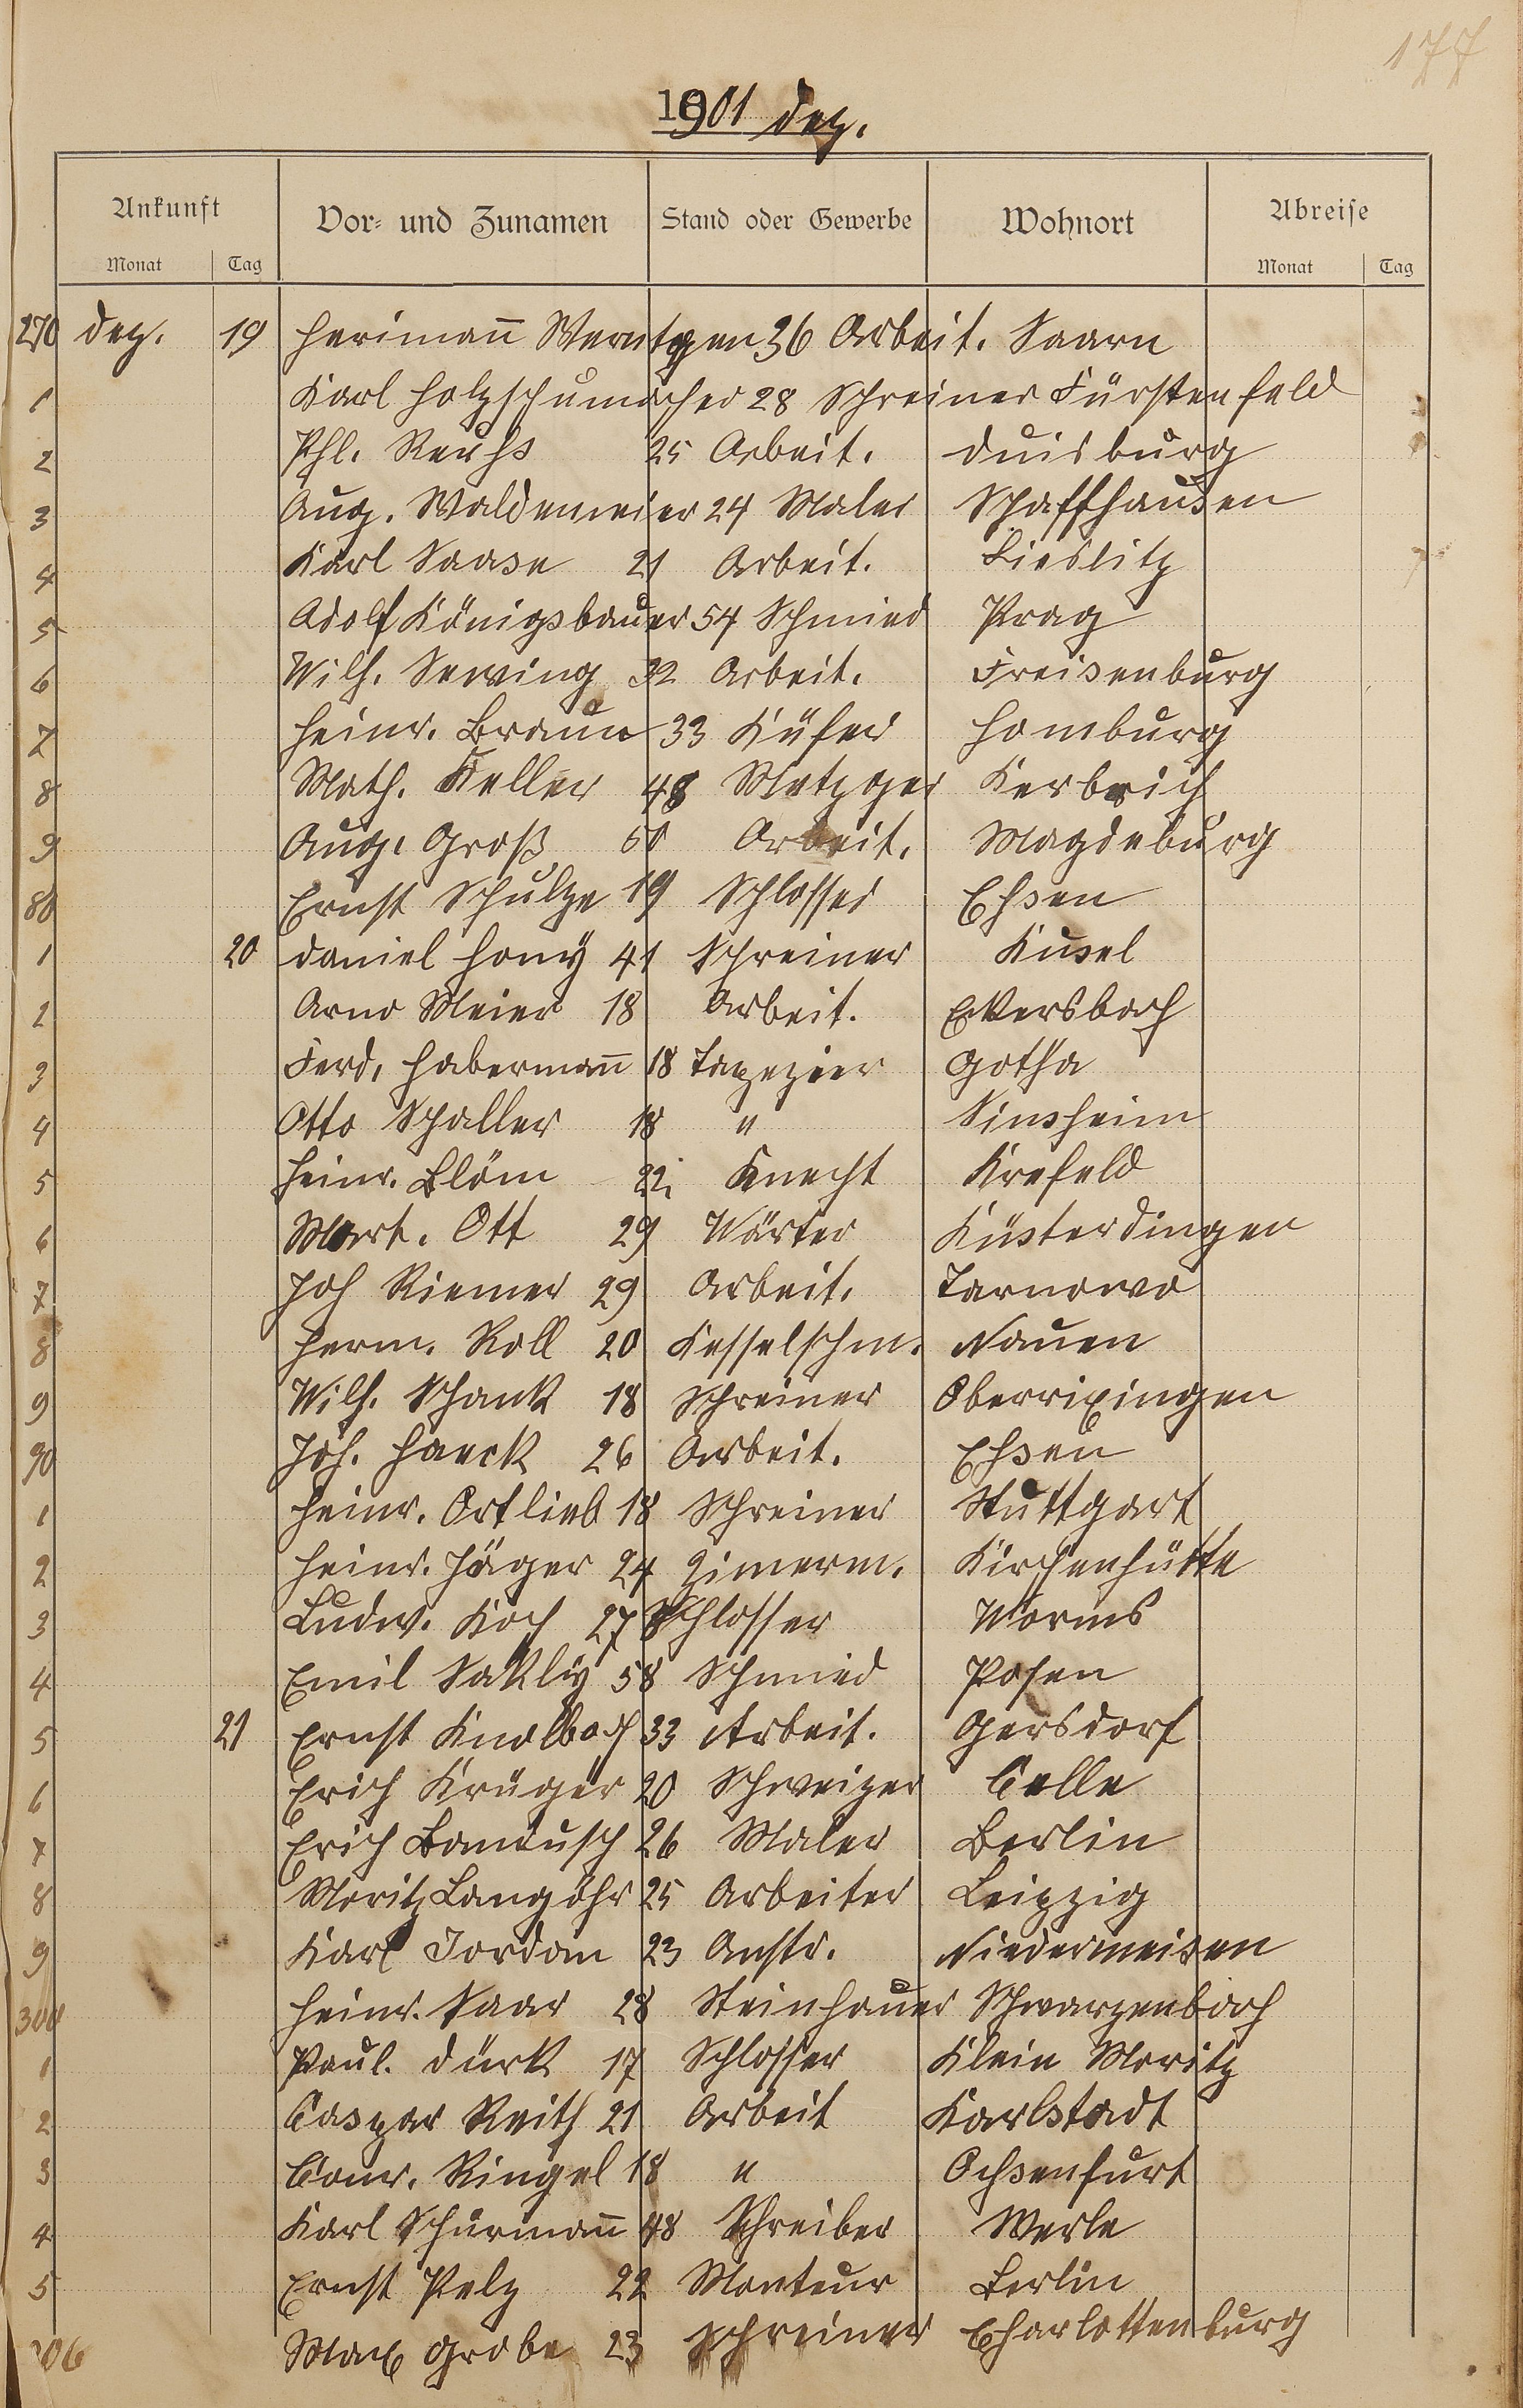 177
1901 Dez.
Ankunft Vor- und Zunamen Stand oder Gewerbe Wohnort Abreise
Monat Tag Monat Tag
270 Dez. 19 Herimann Werntgen 36 Arbeit. Saarn
1 Karl Holzschumacher 28 Schreiner Fürstenfeld
2 Phl. Reuhs 25 Arbeit. Duisburg
3 Aug. Waldemeier 24 Maler Schaffhausen
4 Karl Saase 21 Arbeit. Lieslitz
5 Adolf Königsbauer 54 Schmied Prag
6 Wilh. Serving 32 Arbeit. Freisenburg
7 Heinr. Braun 33 Küfer Homburg
8 Math. Keller 48 Metzger Kerbrich
9 Aug. Groß 60 Arbeit. Magdeburg
80 Ernst Schulze 19 Schlosser Essen
1 20 Daniel Hony 41 Schreiner Kusel
2 Arno Meier 18 Arbeit. Eckersbach
3 Ferd. Habermann 18 Tapezier Gotha
4 Otto Schaller 18 " Sinsheim
5 Heinr. Blöm 22 Knecht Krefeld
6 Mart. Ott 29 Wärter Küsterdingen
7 Joh Riemer 29 Arbeit. Tarnowo
8 Herm. Roll 20 Kesselschm. Nauen
9 Wilh. Schank 18 Schreiner Oberrixingen
90 Joh. Haeck 26 Arbeit. Essen
1 Heinr. Ortlieb 18 Schreiner Stuttgart
2 Heinr. Jäger 24 Zimerm. Kirschenhütte
3 Ludw. Koch 27 Schlosser Worms
4 Emil Sakliy 58 Schmied Posen
5 21 Ernst Knolbach 33 Arbeit. Gersdorf
6 Erich Krüger 20 Schweizer Celle
7 Erich Bandusch 26 Maler Berlin
8 Moritz Langöhr 25 Arbeiter Leipzig
9 Karl Jordan 23 Anstr. Niedermeisen
300 Heinr. Saar 28 Steinhauer Schwarzenbach
1 Paul. Dürk 17 Schlosser Klein Moritz
2 Caspar Reith 21 Arbeit Karlstadt
3 Conr. Ringel 18 " Ochsenfurt
4 Karl Schürmann 48 Schreiber Werle
5 Ernst Pelz 22 Monteur Berlin
306 Max Grobe 23 Schreiner Charlottenburg